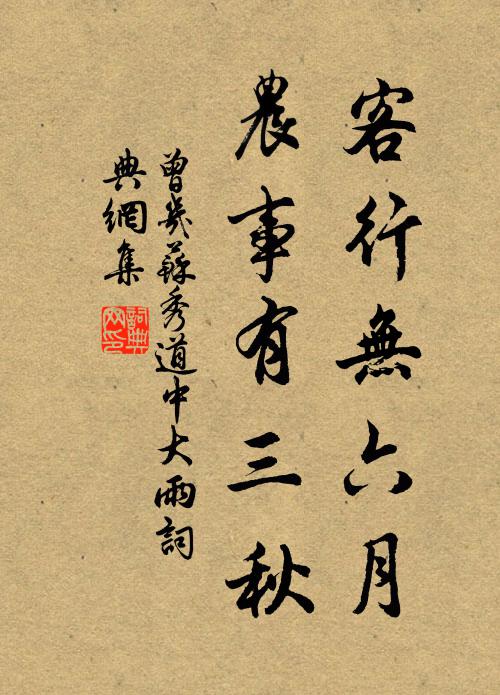 客行無六月
農事有三秋
曾幾蘇秀道中大雨詞
典網集
詞典網印